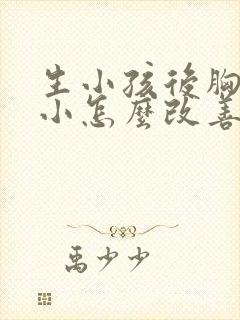 生小孩後胸
小怎麼改善
禹少少